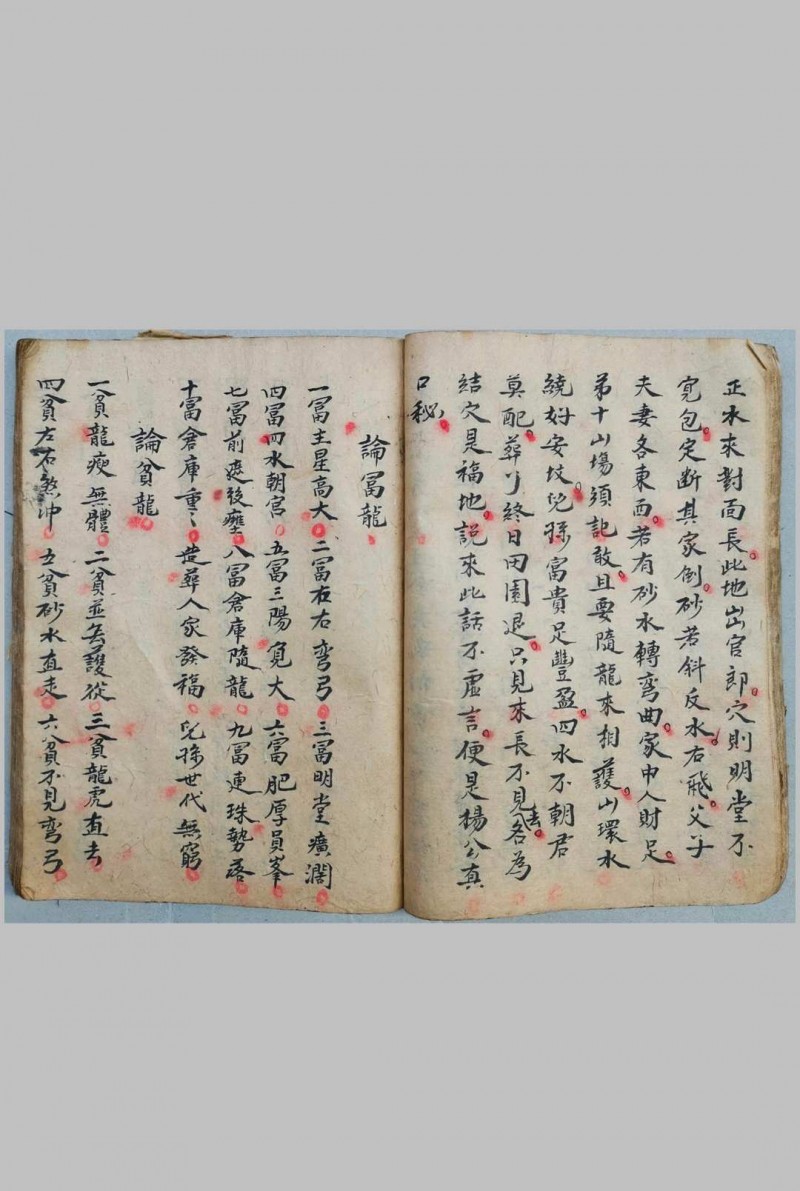 正水來對面長此地出官郎穴則明堂不
寛包定断其家倒砂若斜反水右飛父子
夫妻各東西若有砂水轉弯曲家中人財足
第十山塲須記敢且要隨龍來相護山環水
繞好安坟兒孫富貴足豐盈四水不朝君
莫配葬了終日田園退只見來長不見去各為
結穴是福地説來此話不虚言便是楊公真
口秘
論冨龍
一冨主星高大二冨左右弯弓三冨明堂廣濶
四冨四水朝宫五冨三陽寛大六冨肥厚員峯
七冨前遮後壅八冨倉庫隨龍九冨連珠勢落
十冨倉庫重〻葬人家發福兒孫世代無窮
論貧龍
一貧龍瘦無體二貧並去護從三貧龍虎直去
四貧左右煞冲五貧砂水直走六貧不見弯弓